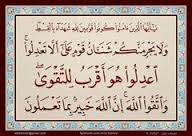 يَٰٓأَيُّهَا ٱلَّذِينَ ءَامَنُوا۟ كُونُوا۟ قَوَّٰمِينَ لِلَّهِ شُهَدَآءَ بِٱلْقِسْطِ
وَلَا يَجْرِمَنَّكُمْ شَنَـَٔانُ قَوْمٍ عَلَىٰٓ أَلَّا تَعْدِلُوا۟
ٱعْدِلُوا۟ هُوَ أَقْرَبُ لِلتَّقْوَىٰ
وَٱتَّقُوا۟ ٱللَّهَ إِنَّ ٱللَّهَ خَبِيرٌۢ بِمَا تَعْمَلُونَ